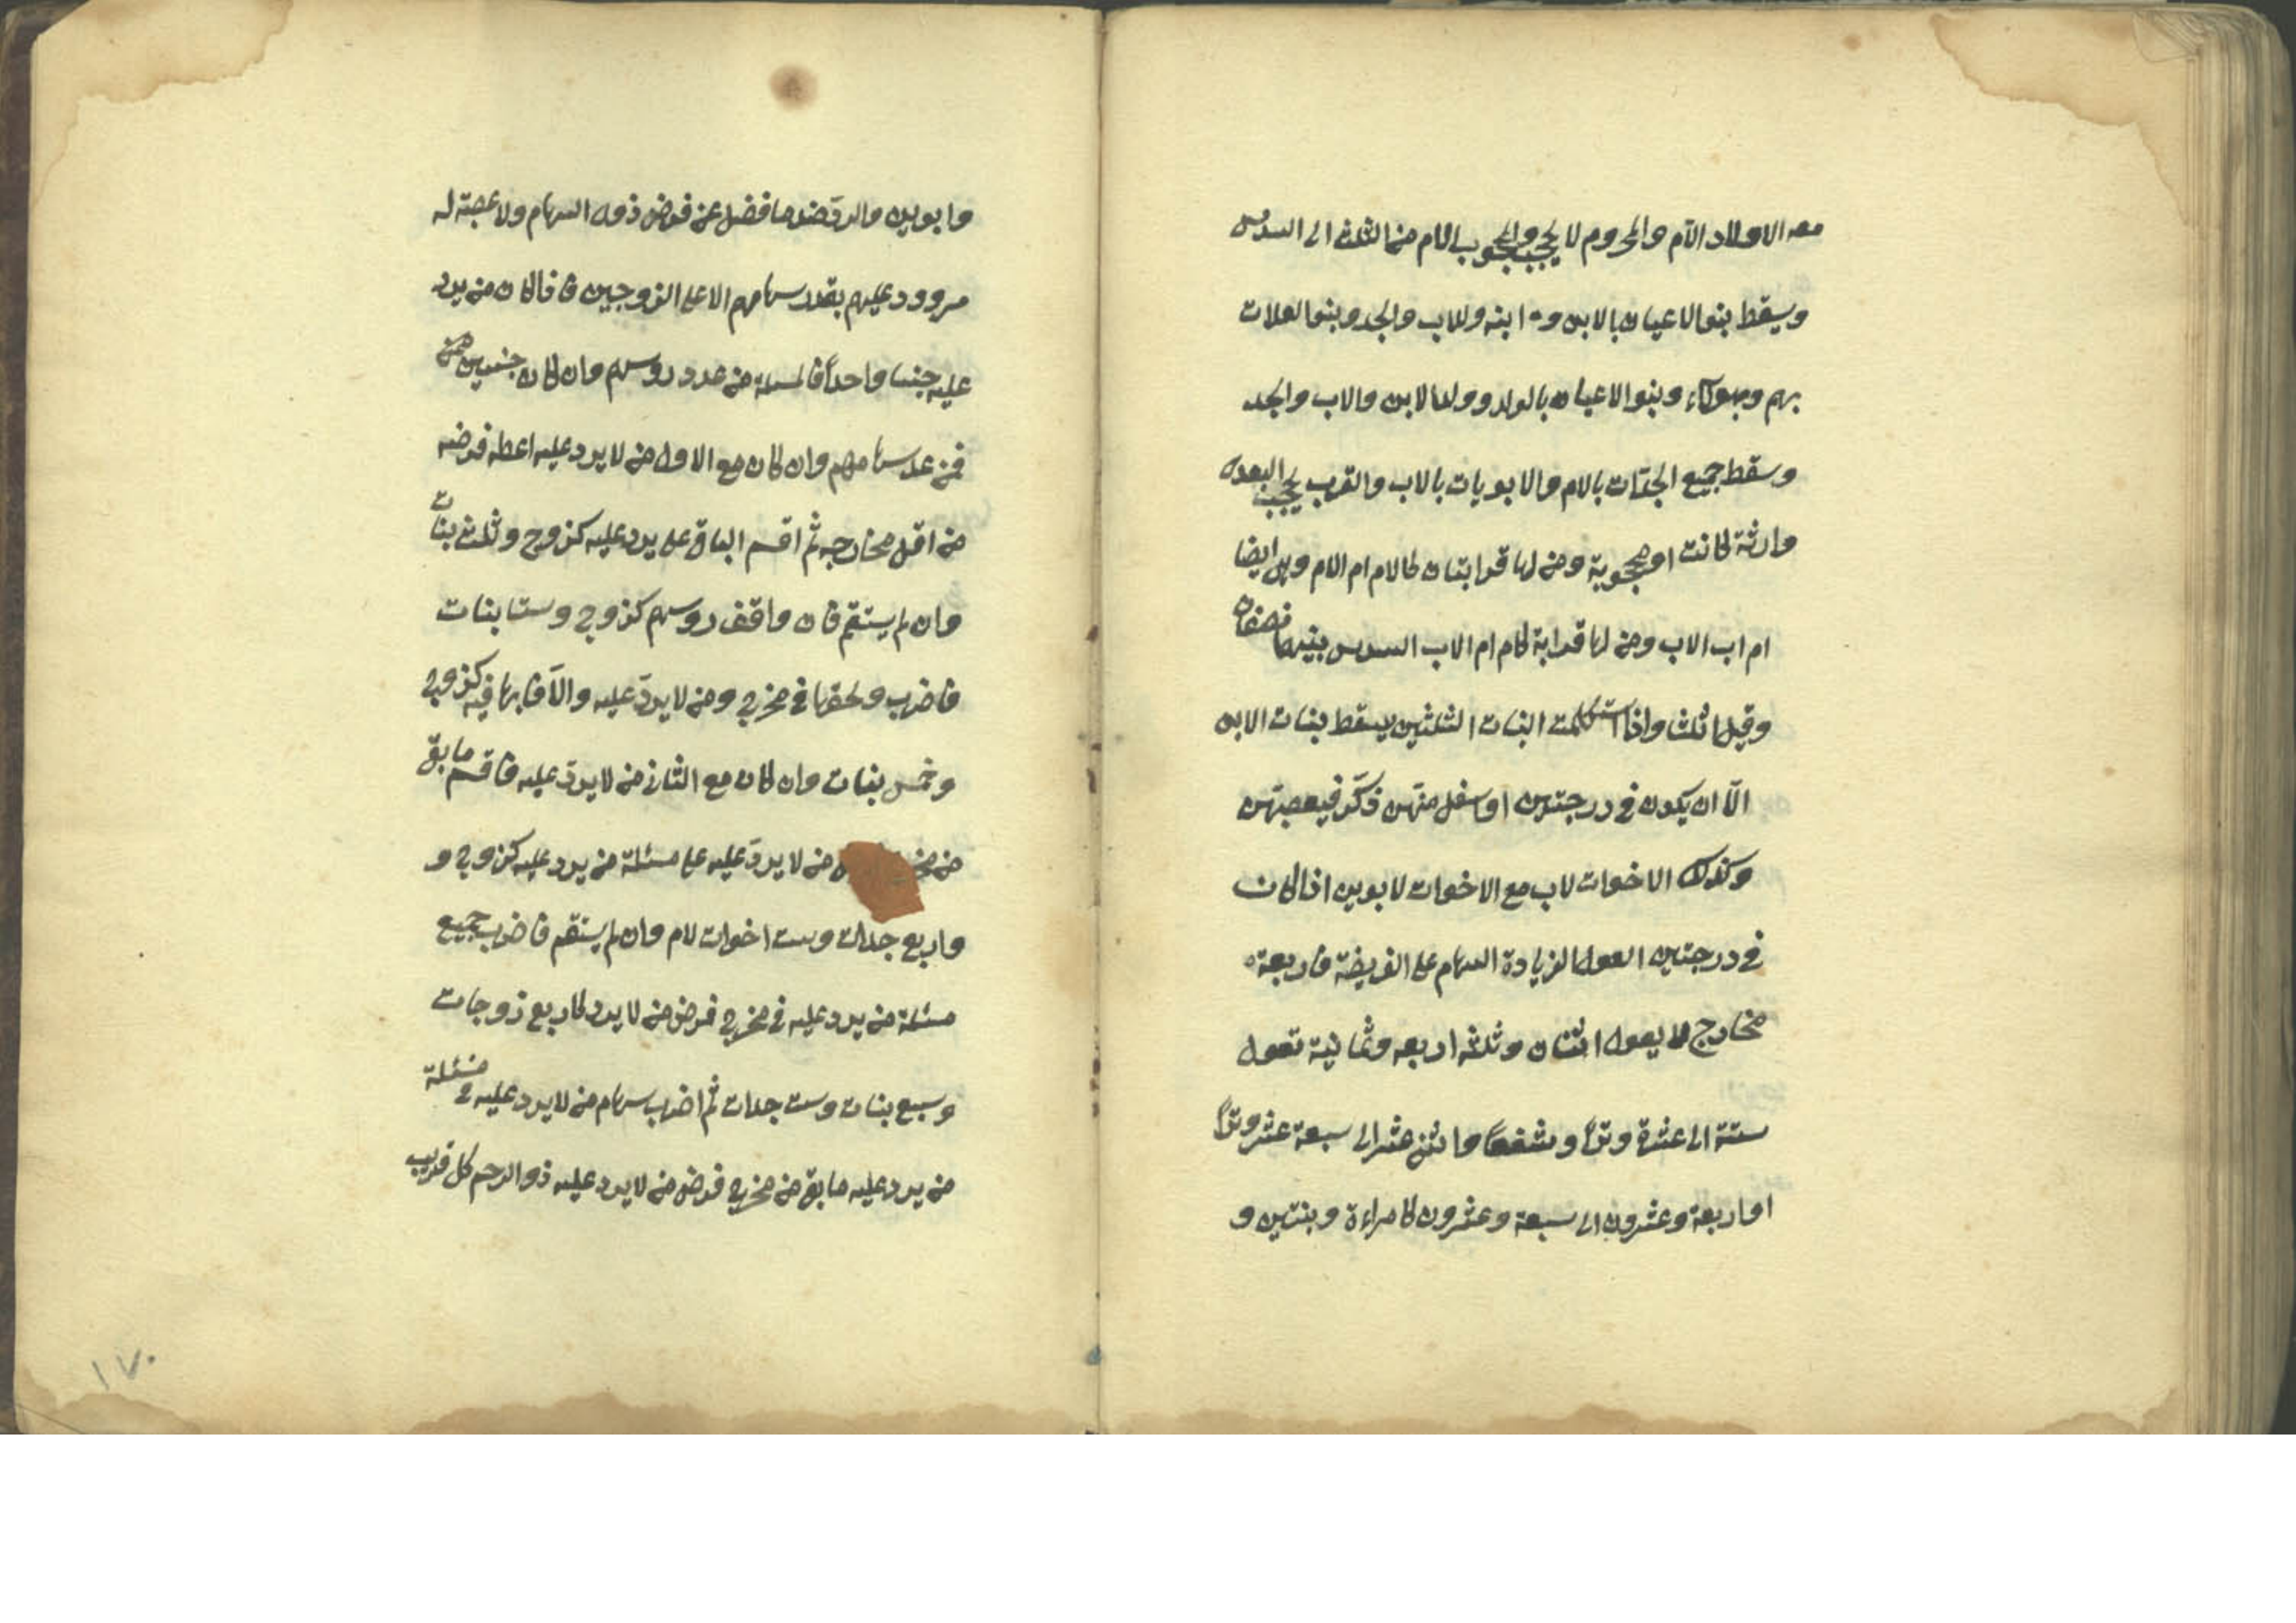 معه الاولاد الام والمحروم لا يحجب والمحجوب بالام من الثلث الى السدس
ويسقط بنوا الاعيان بالابن و ابنه وللاب والجد وبنوا لعلات
بهم وبهولاء وبنوا الاعيان بالولد وولد الابن والاب والجد
وسقط جميع الجدات بالام والابويات بالاب والقرب يحجب البعدى
وارثة كانت او محجوبة ومن لها قرابتان كالام ام الام وهى ايضا
ام اب الاب ومن لها قرابة كام ام الاب السدس بينهما نصفان
وقيل اثلاث واذا استكملت البنات الثلثين يسقط بنات الابن
الّا ان يكون فى درجتهن او سفل منهن ذكر فيعصبهن
وكذلك الاخوات لاب مع الاخوات لابوين اذا كان
فى درجتين العول الزيادة السهام على الفريضة فاربعة
مخارج لا يعول اثنان وثلثه اربعه وثمانية تعول
ستة الى عشرة وتراً وشفعاً واثنى عشر الى سبعة عشر وتراً
او اربعة وعشرون الى سبعة وعشرون كامراءة وبنتين و
وابوين والردّ ضد ما فضل عن فوض ذوى السهام ولا عصبة له
مردود عليهم بقدر سهامهم الا على الزوجين فاذا كان من يرد
عليه جنسا واحداً فالمسئلة من عدد روسهم وان كان جنسين
فمن عدد سهامهم وان كان مع الاول من لا يرد عليه اعطه فرضه
من اقل مخارجه ثم اقسم الباقى على يرد عليه كزوج وثلث بنات
وان لم يستقم فان وافق روسهم كزوج وستا بنات
فاضرب وفقها فى مخرج ومن لا يردّ عليه والّا فابها فيه كزوج
وخمس بنات وان كان مع الثانى من لا يردّ عليه فاقسم ما بقى
من من لا يردّ عليه على مسئلة من يرد عليه كزوج و
واربع جدات وست اخوات لام وان لم يستقم فاضرب جميع
مسئلة من يرد عليه فى مخرج فرض من لا يرد كاربع زوجات
وسبع بنات وست جدات ثم اضرب سهام من لا يرد عليه فى مسئلة
من يرد عليه ما بقى من مخرج فرض من لا يرد عليه ذوالرحم كل قريب
١٧٠